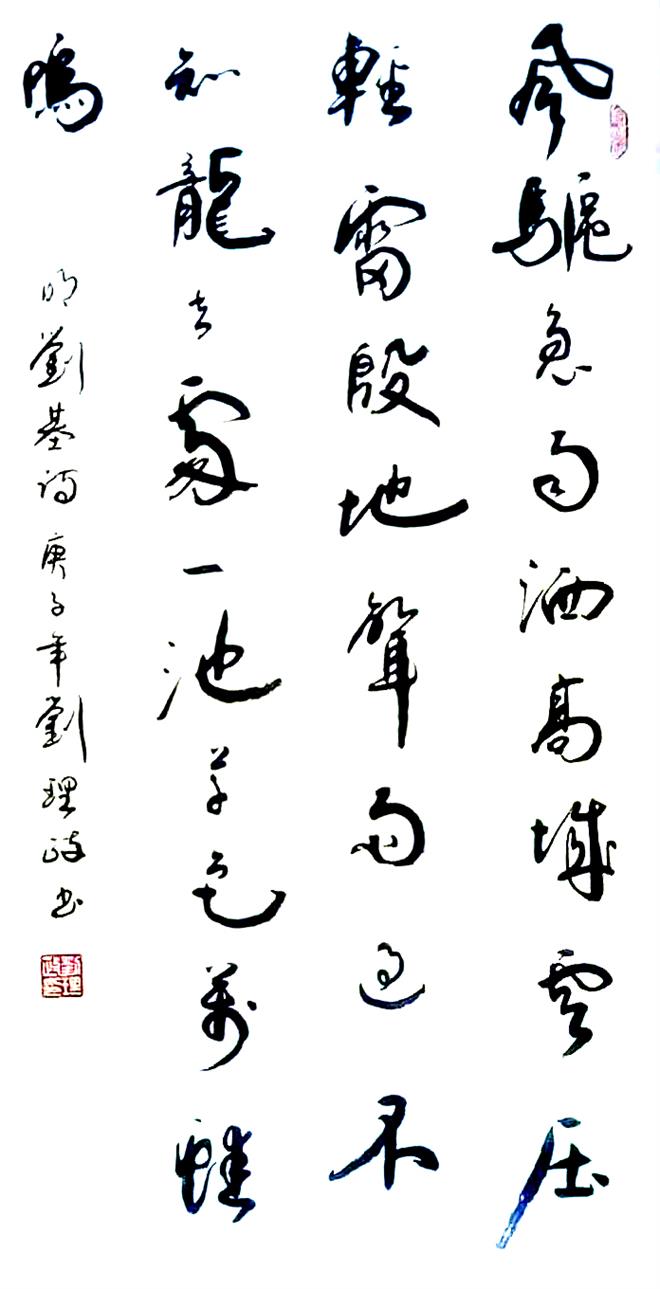 風驅急雨洒高城雲压
輕雷殷地聲雨過不
知龍去處一池草色萬蛙
鳴
明劉基詩庚子年劉理政书